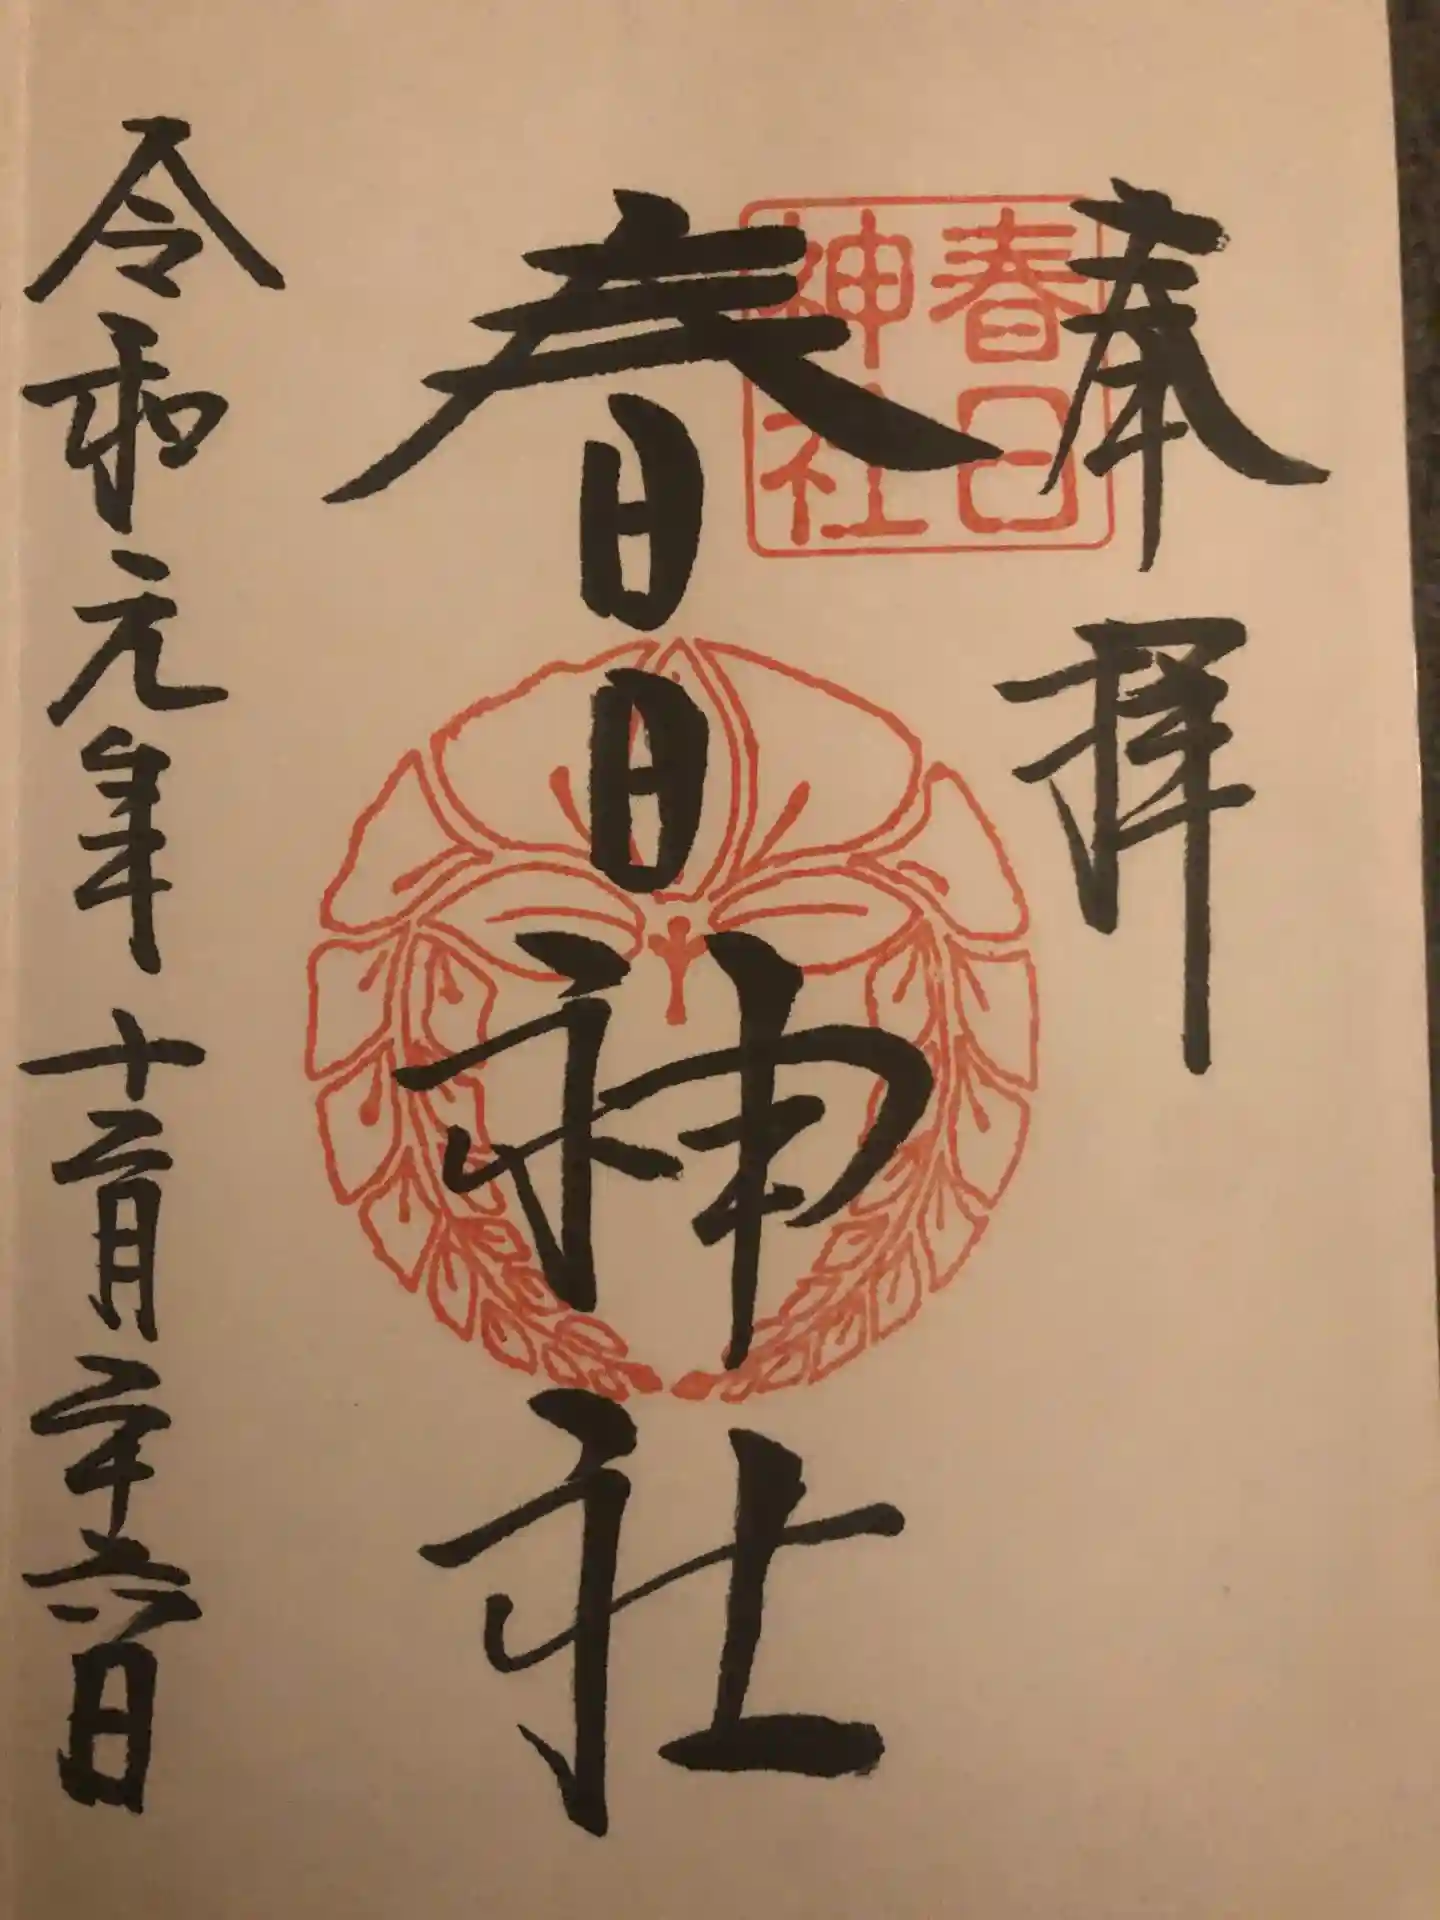 奉拝
春日
神社
春日神社
令和元年十二月二十六日